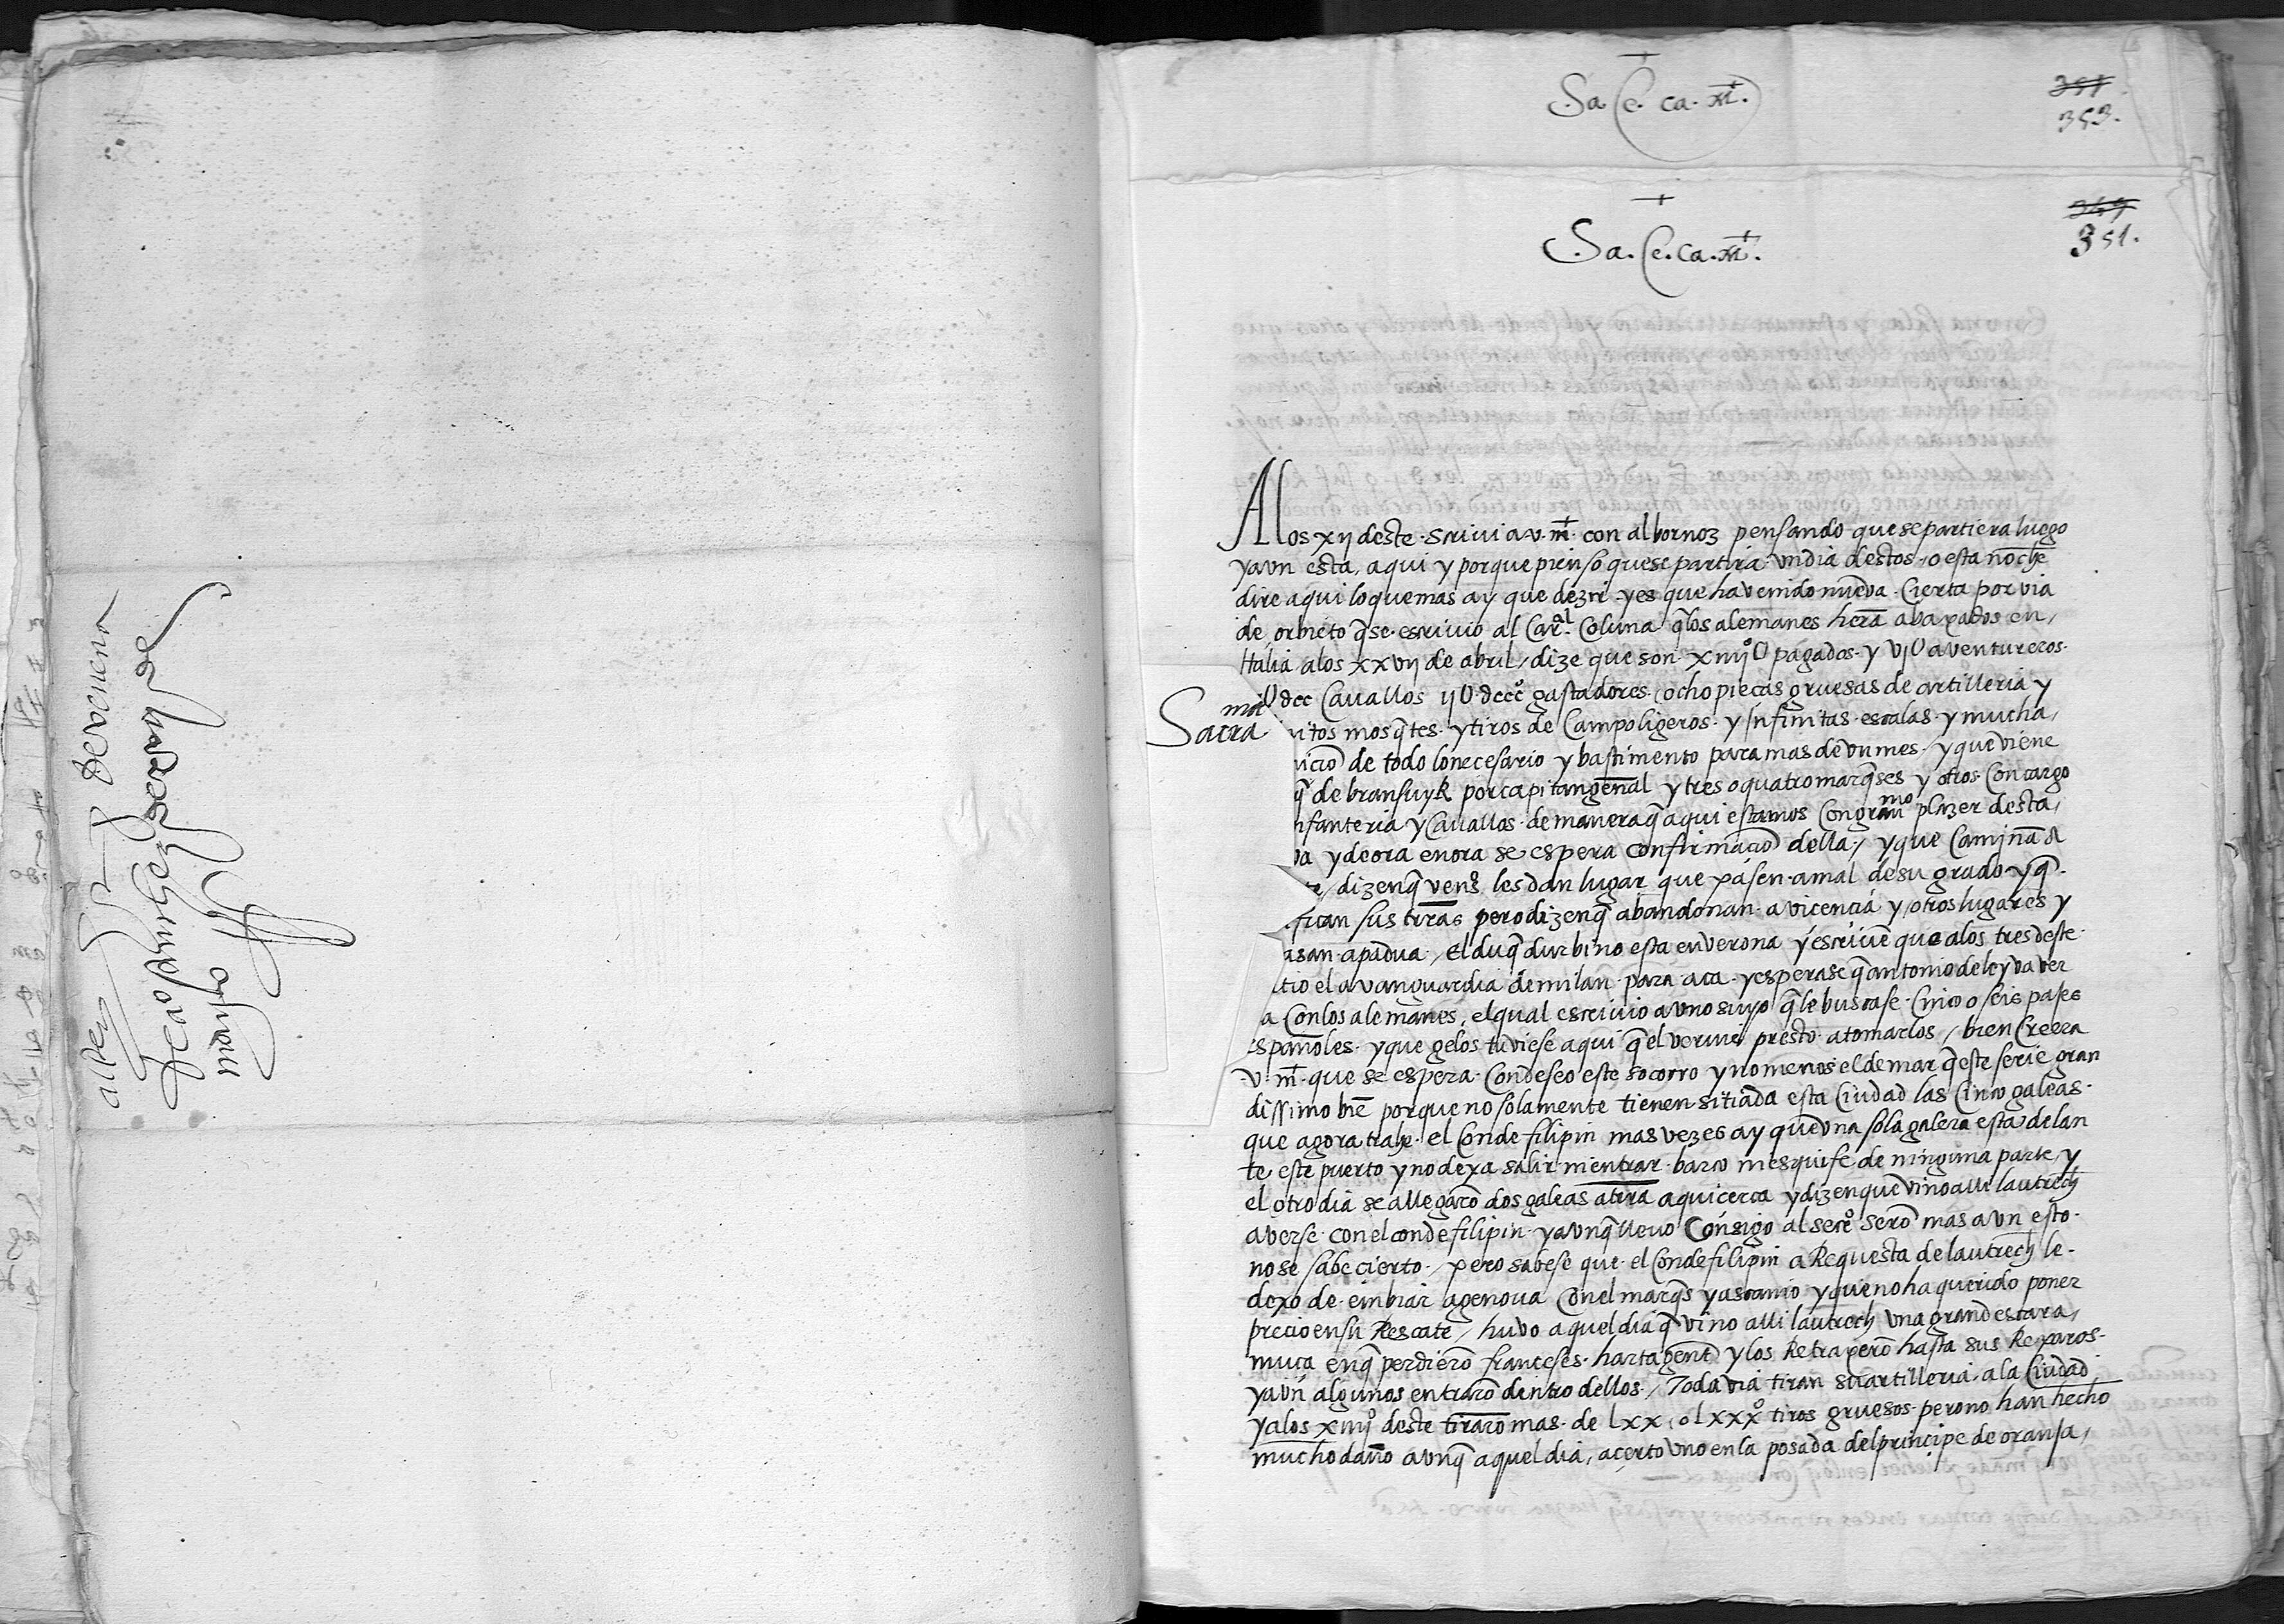 +
Sa. Ce. ca. mt.
351
353.
+
Sa. Ce. ca. mt.
349
351.
A los xij deste scrivi a v. mt. con albornoz pensando que se partiera luego
y aun esta aqui y porque pienso que se partira un dia destos o esta noche
dire aqui lo que mas ay que dezir y es que ha venido nueva cierta por via
de orbieto q̃ se escrivio al Car.al Coluna q̃ los alemanes herã abaxados en
Italia a los xxvij de abril / dize que son xiiijº U pagados y vjU aventureros
mil U dcc Cavallos ijU dcccº gastadores ocho pieças gruesas de artilleria y
Sacra
itos mosq̃tes y tiros de Campo ligeros y Infinitas escalas y mucha
iciõ de todo lo necesario y bastimento para mas de un mes y que viene
q̃ de bransuyk por capitan gen̄al y tres o quatro marq̃ses y otros Con cargo
nfanteria y Cavallos de manera q̃ aqui estamos Con granmo plazer desta
va y de ora en ora se espera confirmaciõ della / y que Caminã a
te / dizen q̃ venºs les dan lugar que pasen a mal de su grado y q̃
fican sus tirãs pero dizen q̃ abandonan a vicencia y otros lugares y
asan a padua / El duq̃ durbino esta en verona y escrivẽ que a los tres deste
tio el avanguardia de milan para aca y esperase q̃ antonio de leyva ver
a Con los alemanes, el qual escrivio a uno suyo q̃ le buscase Cinco o seis pases
españoles y que gelos tuviese aqui q̃ el vernie presto a tomarlos / bien Creera
v. mt. que se espera Con deseo este socorro y no menos el de mar q̃ este serie gran
dissimo biẽ porque no solamente tienen sitiada esta Ciudad las Cinco galeas
que agora trahe el Conde filipin mas vezes ay que una sola galera esta delan
te este puerto y no dexa salir ni entrar barco ni esquife de ninguna parte y
el otro dia se allegarõ dos galeas a tirã aqui cerca y dizen que vino alli lautrech
a verse con el conde filipin y aunq̃ llevo Consigo al secrº serõ mas aun esto
no se sabe cierto / pero sabese que el Conde filipin a Requesta de lautrech le
dexo de embiar a genova Con el marq̃s y ascanio y que no ha querido poner
precio en su Rescate / huvo aquel dia q̃ vino alli lautrech una grand escara
muça en q̃ perdierõ franceses harta gente y los Retraxerõ hasta sus Reparos
y aun algunos entrarõ dentro dellos / Todavia tiran su artilleria a la Ciudad
y a los xiiijº deste tirarõ mas de lxx o lxxxº tiros gruesos pero no han hecho
mucho daño aunq̃ aquel dia, acerto uno en la posada del principe de oranja